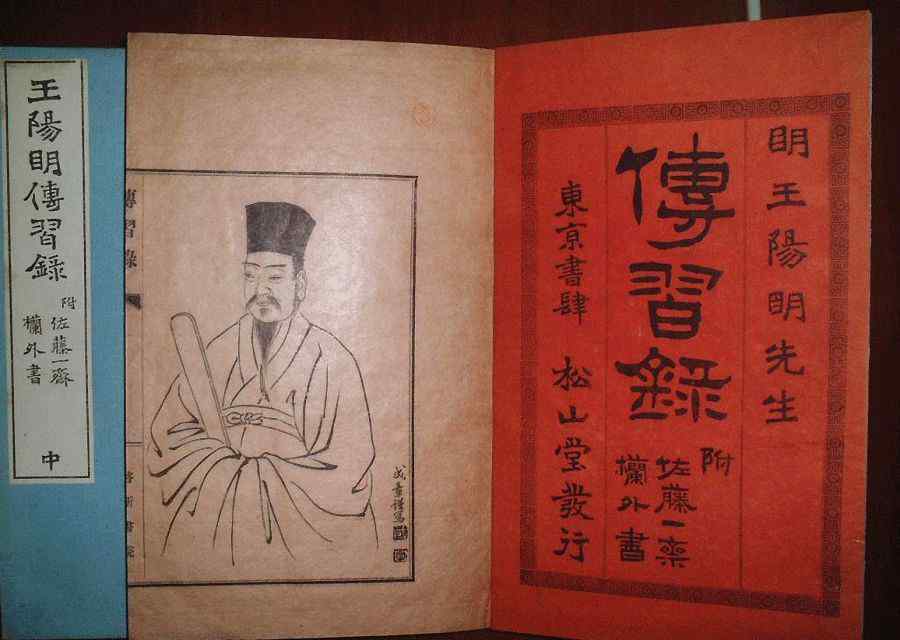 王陽明傳習錄
附
佐藤一齋
欄外書
中
明王陽明先生
傳習錄
附
佐藤一齋
欄外書
東京書肆 松山堂發行
傳習錄